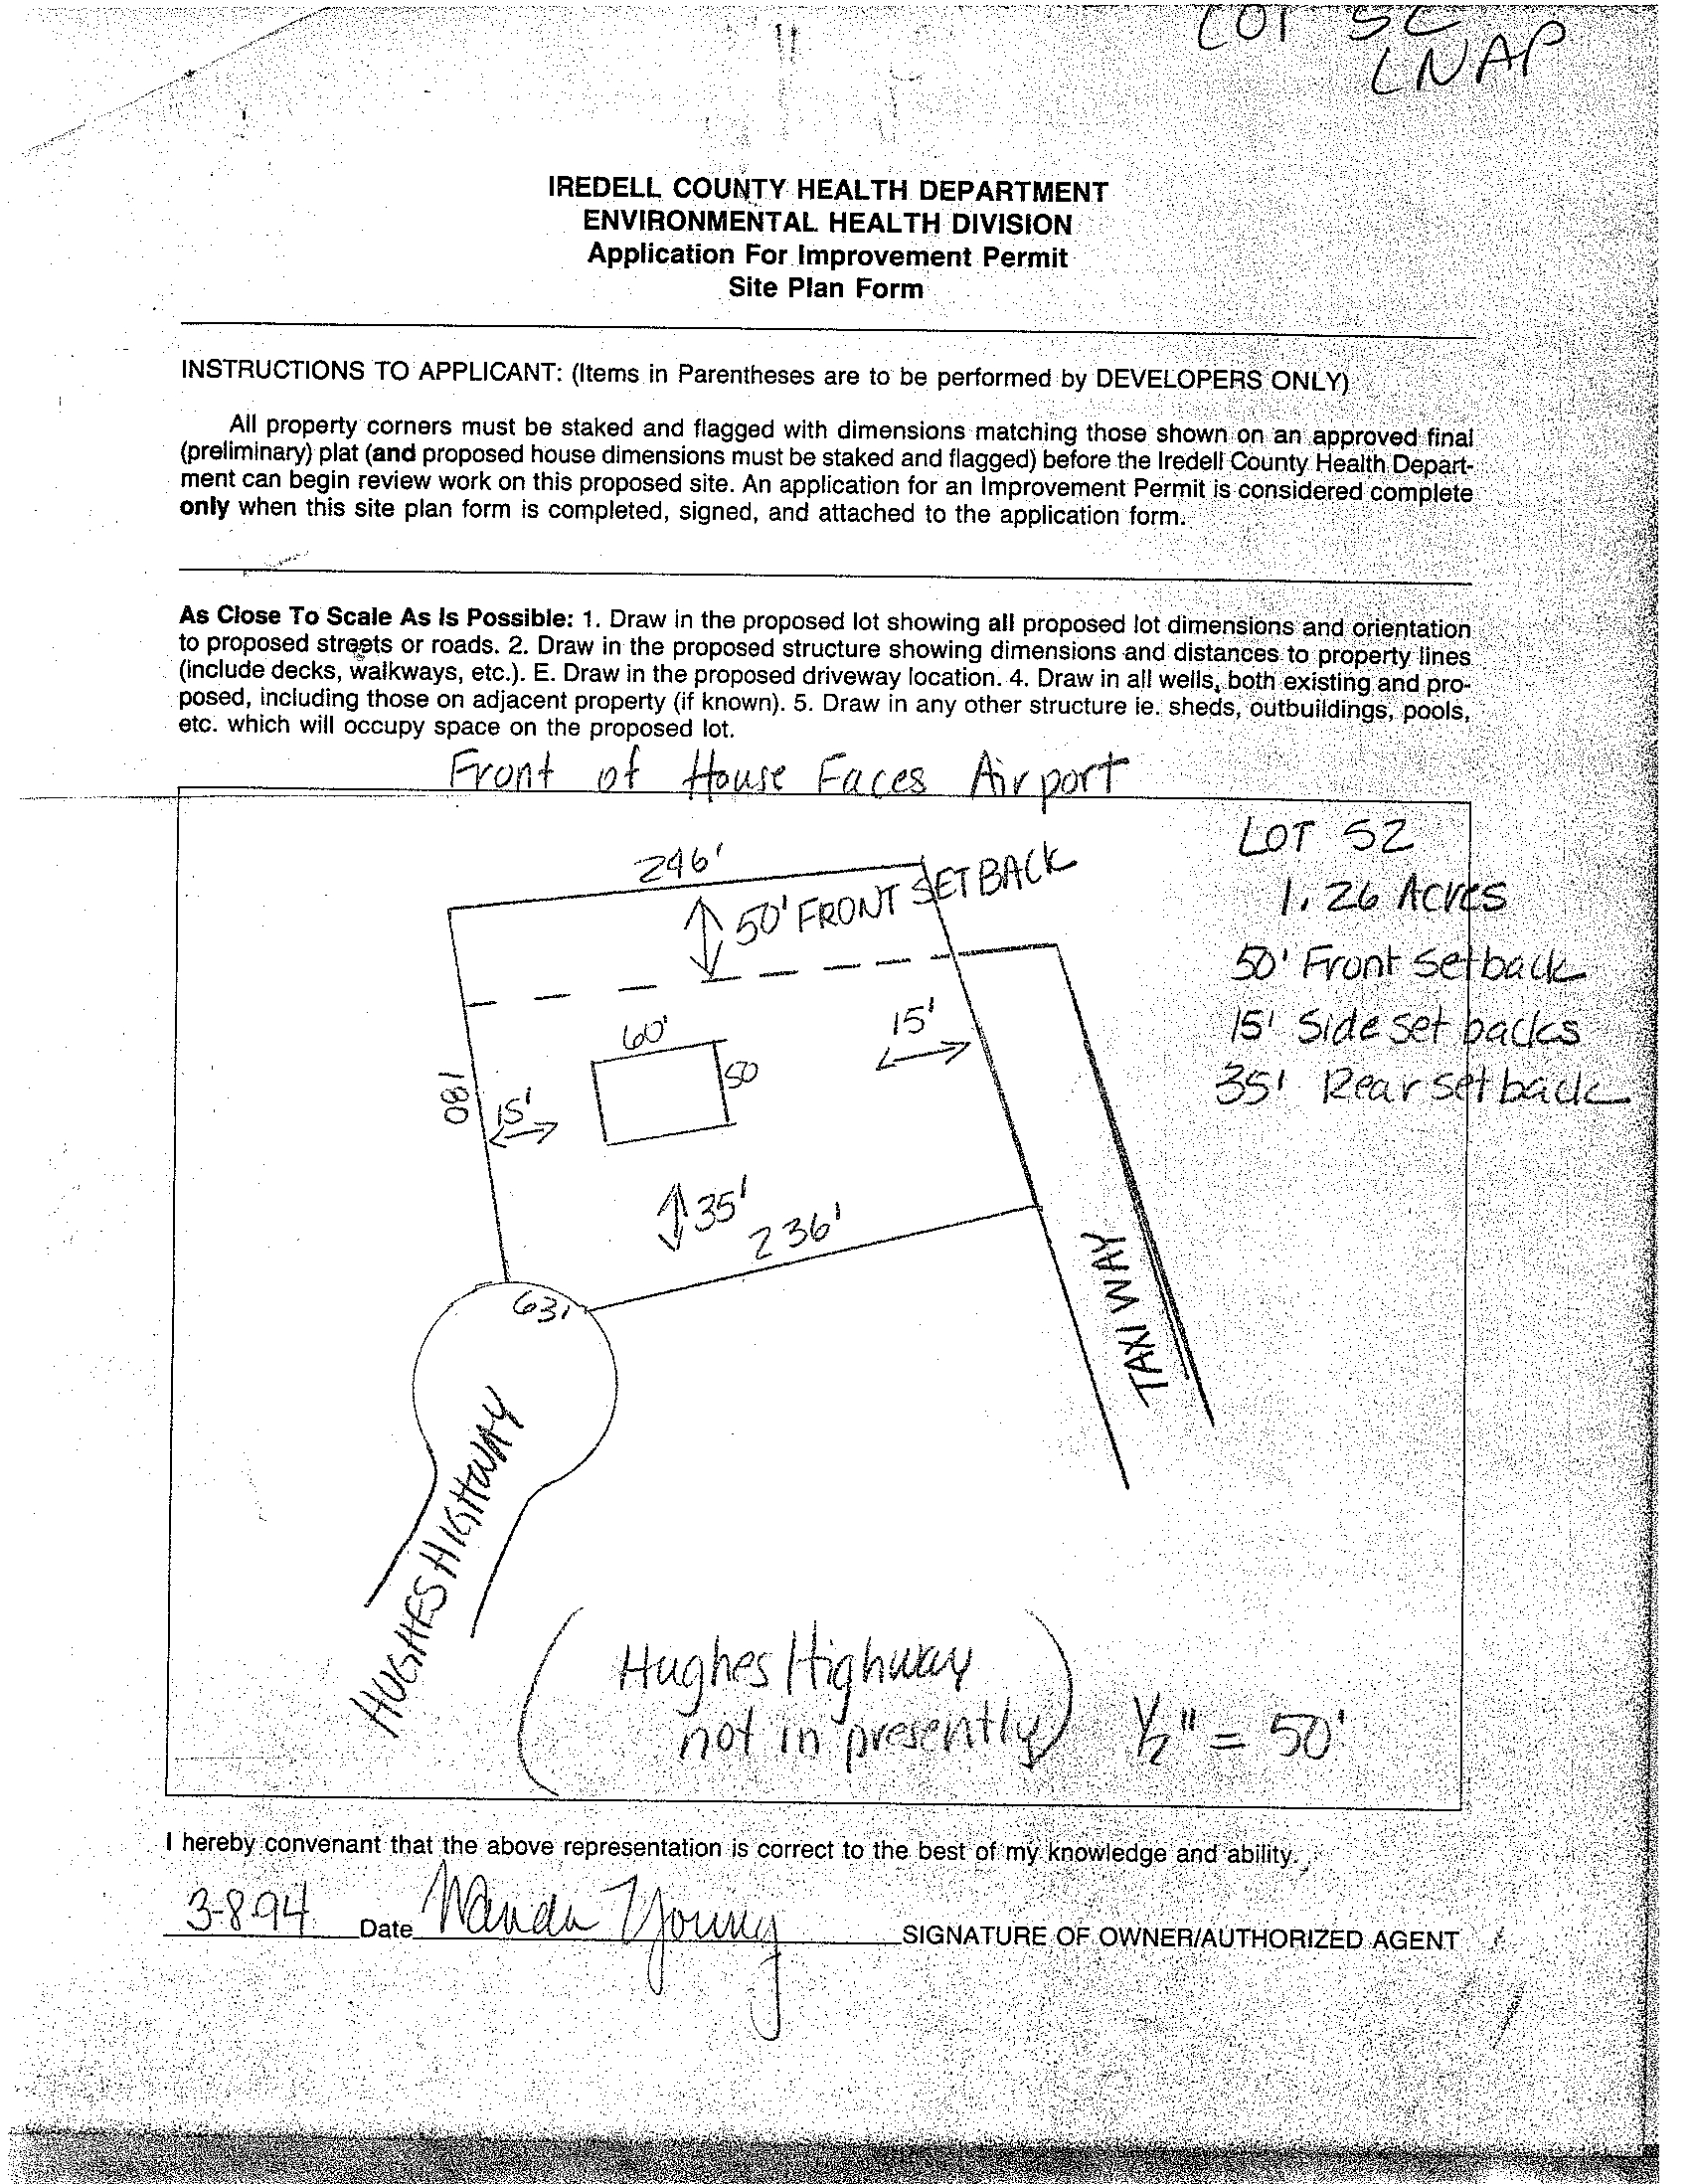 LOT 52
LNAP
IREDELL COUNTY HEALTH DEPARTMENT
ENVIRONMENTAL HEALTH DIVISION
Application For Improvement Permit
Site Plan Form
INSTRUCTIONS TO APPLICANT: (Items in Parentheses are to be performed by DEVELOPERS ONLY)
All property corners must be staked and flagged with dimensions matching those shown on an approved final
(preliminary) plat (and proposed house dimensions must be staked and flagged) before the Iredell County Health Depart-
ment can begin review work on this proposed site. An application for an Improvement Permit is considered complete
only when this site plan form is completed, signed, and attached to the application form.
As Close To Scale As Is Possible: 1. Draw in the proposed lot showing all proposed lot dimensions and orientation
to proposed streets or roads. 2. Draw in the proposed structure showing dimensions and distances to property lines
(include decks, walkways, etc.). E. Draw in the proposed driveway location. 4. Draw in all wells, both existing and pro-
posed, including those on adjacent property (if known). 5. Draw in any other structure ie. sheds, outbuildings, pools,
etc. which will occupy space on the proposed lot.
Front of House Faces Airport
LOT 52
1.26 Acres
50' Front Setback
15' Side set backs
35' Rear set back
246'
50' FRONT SETBACK
60'
50
15'
180'
15'
35'
236'
63'
TAXI WAY
HUGHES HIGHWAY
(Hughes Highway
not in presently)
1/2" = 50'
I hereby convenant that the above representation is correct to the best of my knowledge and ability.
3-8-94 Date Wanda Young SIGNATURE OF OWNER/AUTHORIZED AGENT